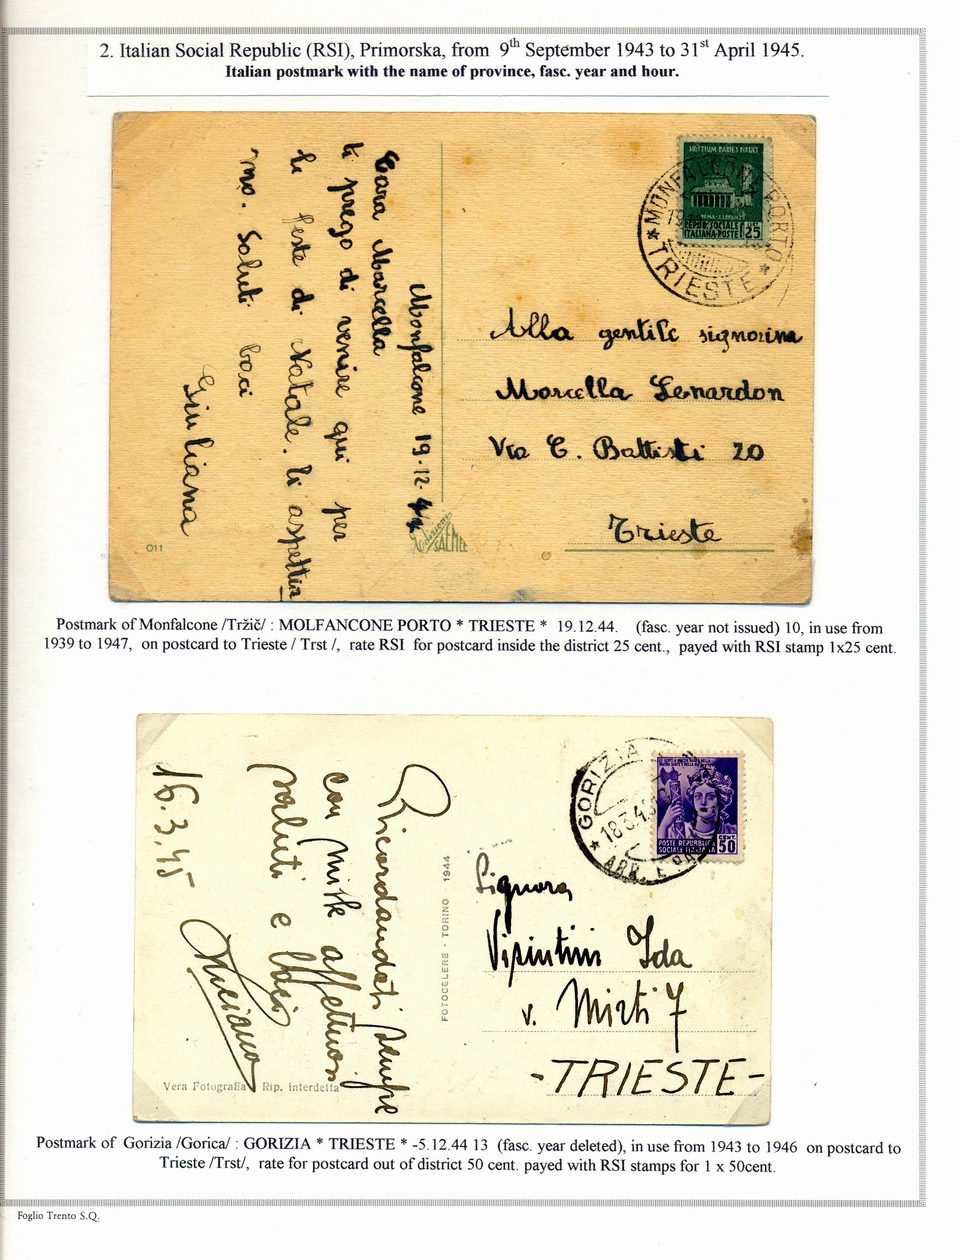 2. Italian Social Republic (RSI), Primorska, from 9th September 1943 to 31st April 1945.
Italian postmark with the name of province, fasc. year and hour.
HOSTIUM RABIES DIRUIT
REPUB. SOCIALE
ITALIANA-POSTE
25
* MONFALCONE PORTO *
TRIESTE
Monfalcone 19.12.44
Cara Marcella
ti prego di venire qui per
le feste di Natale. Ti aspettia
mo. Saluti baci
Giuliana
Alla gentile signorina
Marcella Lenardon
Via C. Battisti 20
Trieste
011
Edizioni
SAEMEC
Postmark of Monfalcone /Tržič/ : MOLFANCONE PORTO * TRIESTE * 19.12.44. (fasc. year not issued) 10, in use from
1939 to 1947, on postcard to Trieste / Trst /, rate RSI for postcard inside the district 25 cent., payed with RSI stamp 1x25 cent.
GORIZIA
18.3.45
* ARR. E PA
POSTE REPUBBLICA
SOCIALE ITALIANA
CENT.
50
Ricordandoti sempre
con mille affettuosi
saluti e baci
Luciano
16.3.45
FOTOCELERE - TORINO 1944
Vera Fotografia Rip. interdetta
Signora
Visintini Ida
v. Mirti 7
-TRIESTE-
Postmark of Gorizia /Gorica/ : GORIZIA * TRIESTE * -5.12.44 13 (fasc. year deleted), in use from 1943 to 1946 on postcard to
Trieste /Trst/, rate for postcard out of district 50 cent. payed with RSI stamps for 1 x 50cent.
Foglio Trento S.Q.